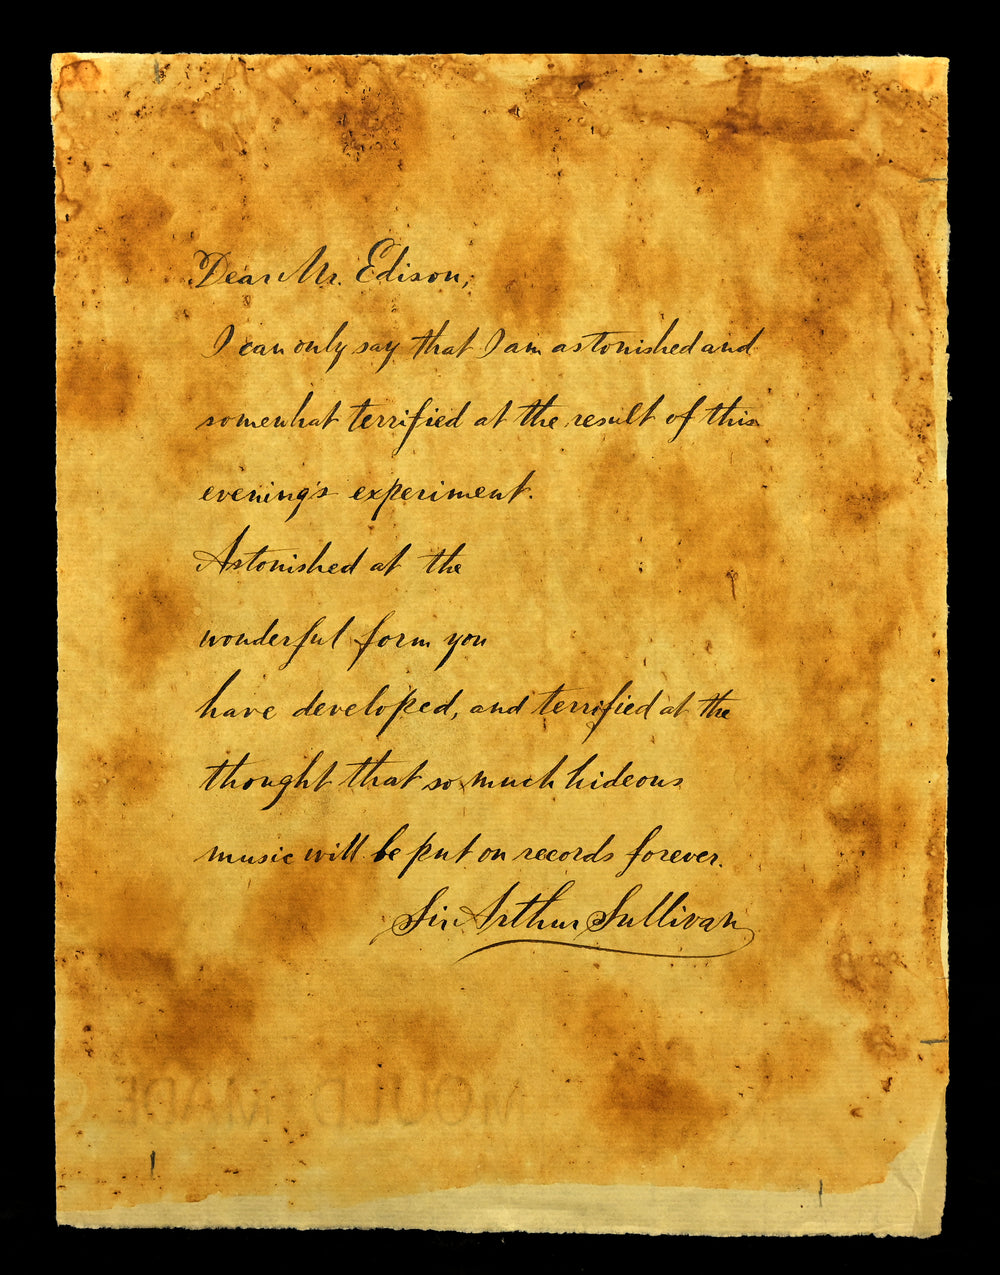 Dear Mr. Edison,
I can only say that I am astonished and
somewhat terrified at the result of this
evening's experiment.
Astonished at the
wonderful form you
have developed, and terrified at the
thought that so much hideous
music will be put on records forever.
Sir Arthur Sullivan
MOULD MADE